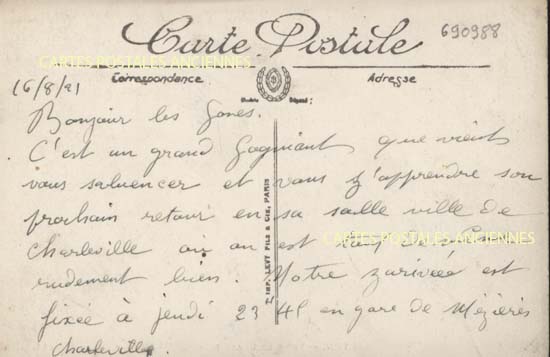 690988
Carte Postale
CARTES POSTALES ANCIENNES
Correspondance
Adresse
16/8/21
Modèle Déposé
Bonjour les Gones.
C'est un grand fagniant que vient
vous saluencer et vous z'apprendre son
prochain retour en sa salle ville de
Charleville où on est
CARTES POSTALES ANCIENNES
rudement bien. Notre zarivéeé est
fixée à jeudi 23 45 en gare de Mézières
Charleville.
IMP. LEVY FILS & CIE, PARIS